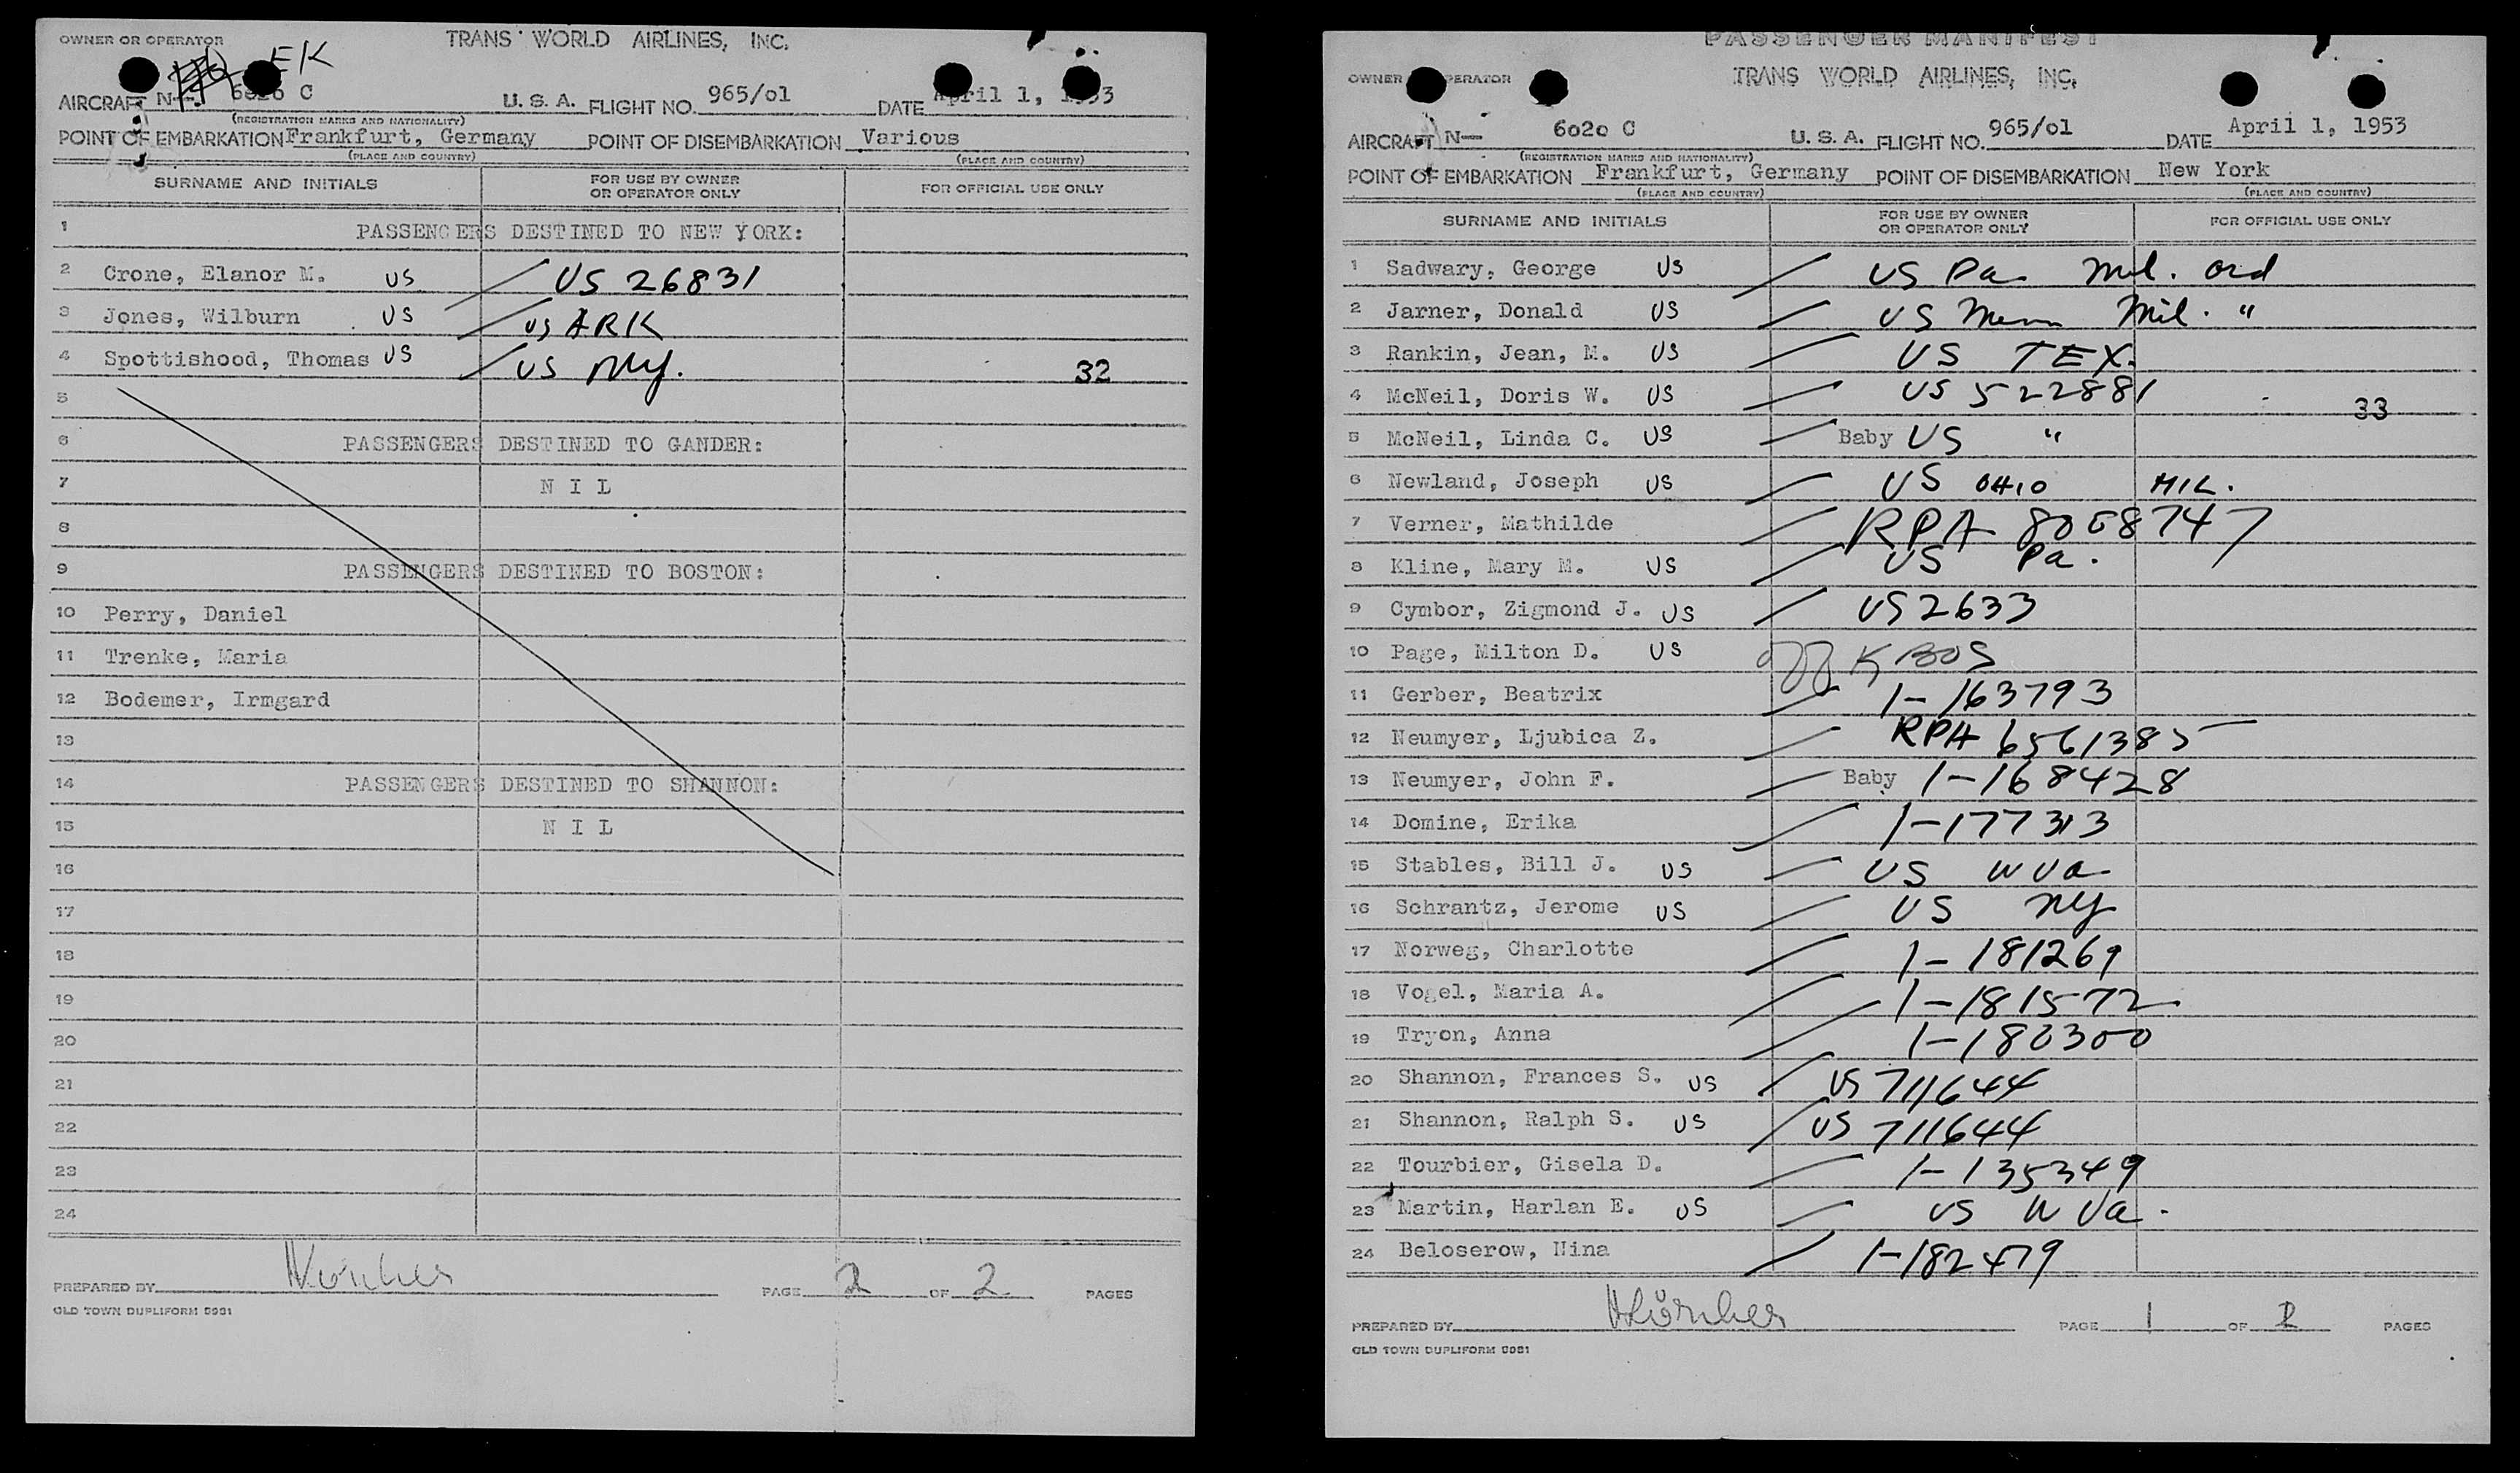 OWNER OR OPERATOR TRANS WORLD AIRLINES, INC.
EK
AIRCRAFT N— C U. S. A. FLIGHT NO. 965/01 DATE April 1, 1953
(REGISTRATION MARKS AND NATIONALITY)
POINT OF EMBARKATION Frankfurt, Germany POINT OF DISEMBARKATION Various
(PLACE AND COUNTRY) (PLACE AND COUNTRY)
SURNAME AND INITIALS FOR USE BY OWNER OR OPERATOR ONLY FOR OFFICIAL USE ONLY
1 PASSENGERS DESTINED TO NEW YORK:
2 Crone, Elanor M. US US 26831
3 Jones, Wilburn US US ARK
4 Spottishood, Thomas US US NY. 32
5
6 PASSENGERS DESTINED TO GANDER:
7 N I L
8
9 PASSENGERS DESTINED TO BOSTON:
10 Perry, Daniel
11 Trenke, Maria
12 Bodemer, Irmgard
13
14 PASSENGERS DESTINED TO SHANNON:
15 N I L
16
17
18
19
20
21
22
23
24
PREPARED BY PAGE 2 OF 2 PAGES
OLD TOWN DUPLIFORM 5981
PASSENGER MANIFEST
OWNER OPERATOR TRANS WORLD AIRLINES, INC.
AIRCRAFT N— 6020 C U. S. A. FLIGHT NO. 965/01 DATE April 1, 1953
(REGISTRATION MARKS AND NATIONALITY)
POINT OF EMBARKATION Frankfurt, Germany POINT OF DISEMBARKATION New York
(PLACE AND COUNTRY) (PLACE AND COUNTRY)
SURNAME AND INITIALS FOR USE BY OWNER OR OPERATOR ONLY FOR OFFICIAL USE ONLY
1 Sadwary, George US US Pa Mil. Ord
2 Jarner, Donald US US Mil. "
3 Rankin, Jean, M. US US TEX.
4 McNeil, Doris W. US US 522881 33
5 McNeil, Linda C. US Baby US "
6 Newland, Joseph US US OHIO MIL.
7 Verner, Mathilde RPA 8058747
8 Kline, Mary M. US US Pa.
9 Cymbor, Zigmond J. US US 2633
10 Page, Milton D. US BOS
11 Gerber, Beatrix 1-163793
12 Neumyer, Ljubica Z. RPA 6561385
13 Neumyer, John F. Baby 1-168428
14 Domine, Erika 1-177313
15 Stables, Bill J. US US W Va
16 Schrantz, Jerome US US NY
17 Norweg, Charlotte 1-181269
18 Vogel, Maria A. 1-181572
19 Tryon, Anna 1-180300
20 Shannon, Frances S. US US 711644
21 Shannon, Ralph S. US US 711644
22 Tourbier, Gisela D. 1-135349
23 Martin, Harlan E. US US W Va.
24 Beloserow, Nina 1-182479
PREPARED BY PAGE 1 OF 2 PAGES
OLD TOWN DUPLIFORM 5981